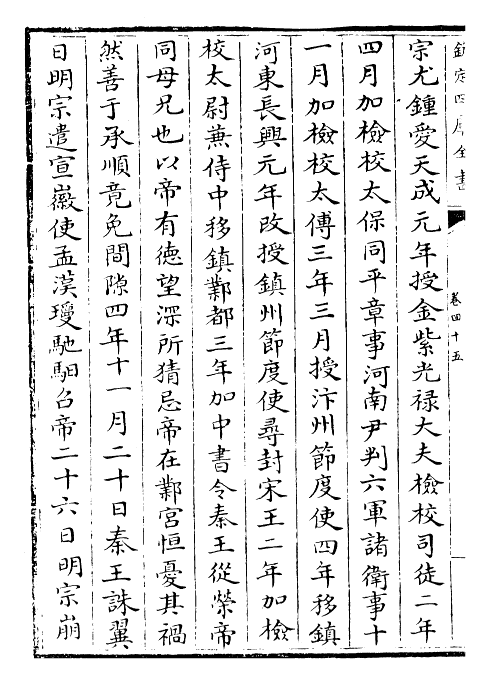 欽定四庫全書
卷四十五
宗尤鍾愛天成元年授金紫光禄大夫檢校司徒二年
四月加檢校太保同平章事河南尹判六軍諸衛事十
一月加檢校太傅三年三月授汴州節度使四年移鎮
河東長興元年改授鎮州節度使尋封宋王二年加檢
校太尉兼侍中移鎮鄴都三年加中書令秦王從榮帝
同母兄也以帝有德望深所猜忌帝在鄴宮恒憂其禍
然善于承順竟免間隙四年十一月二十日秦王誅翼
日明宗遣宣徽使孟漢瓊馳馹召帝二十六日明宗崩